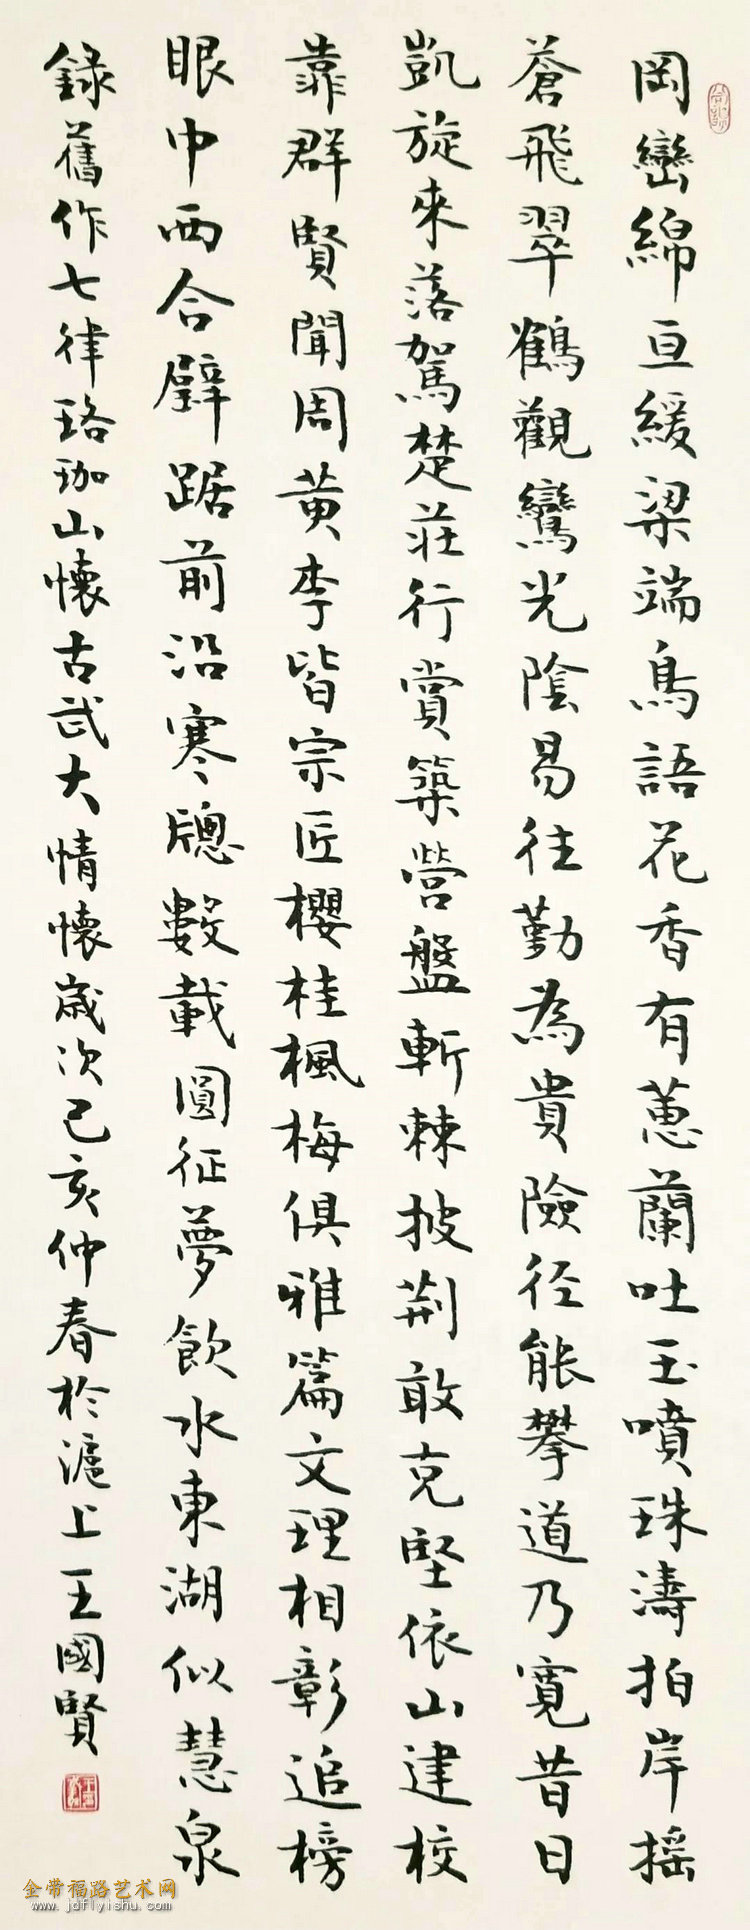 岡巒綿亘緩梁端鳥語花香有蕙蘭吐玉噴珠濤拍岸搖
蒼飛翠鶴觀鸞光陰易往勤為貴險径能攀道乃寬昔日
凱旋來落駕楚莊行賞築營盤斬棘披荆敢克堅依山建校
靠群賢聞周黄李皆宗匠櫻桂楓梅俱雅篇文理相彰追榜
眼中西合璧踞前沿寒牕數載圓征夢飲水東湖似慧泉
錄舊作七律珞珈山懷古武大情懷歲次己亥仲春於滬上王國賢
金带福路艺术网
www.jdflyishu.com